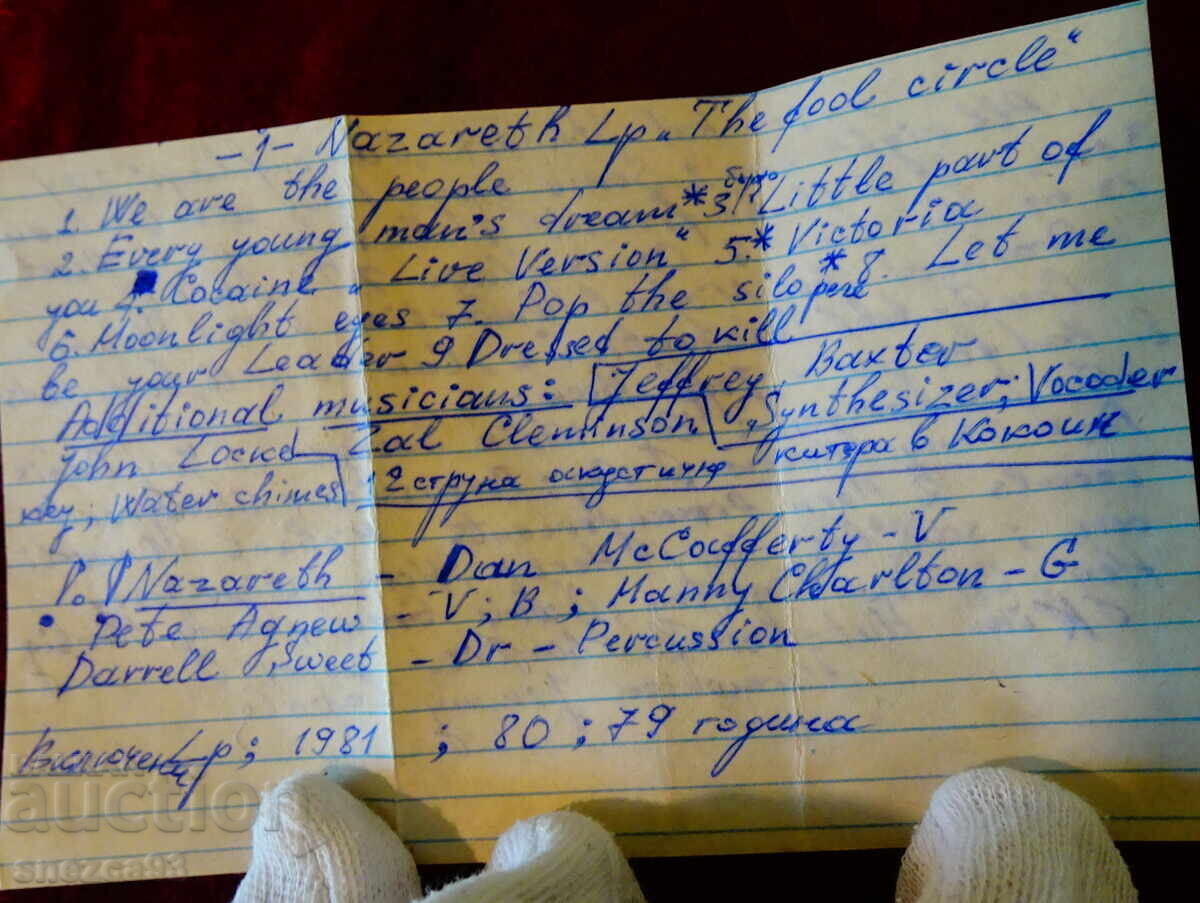 -1- Nazareth Lp „The fool circle“
1. We are the people
2. Every young man's dream * 3. Little part of
you 4. Cocaine „Live Version“ 5.* Victoria
6. Moonlight eyes 7. Pop the silo * 8. Let me
be your Leader 9 Dressed to kill
Additional musicians: Jeffrey Baxter
„Synthesizer; Vocoder
John Locke Zal Cleminson
key; Water chimes 12 струна акустична китара в Кокоин
P.P Nazareth - Dan McCafferty - V
• Pete Agnew - V; B; Manny Charlton - G
Darrell Sweet - Dr - Percussion
Включени Lp; 1981 ; 80 ; 79 година
auction
snezca93